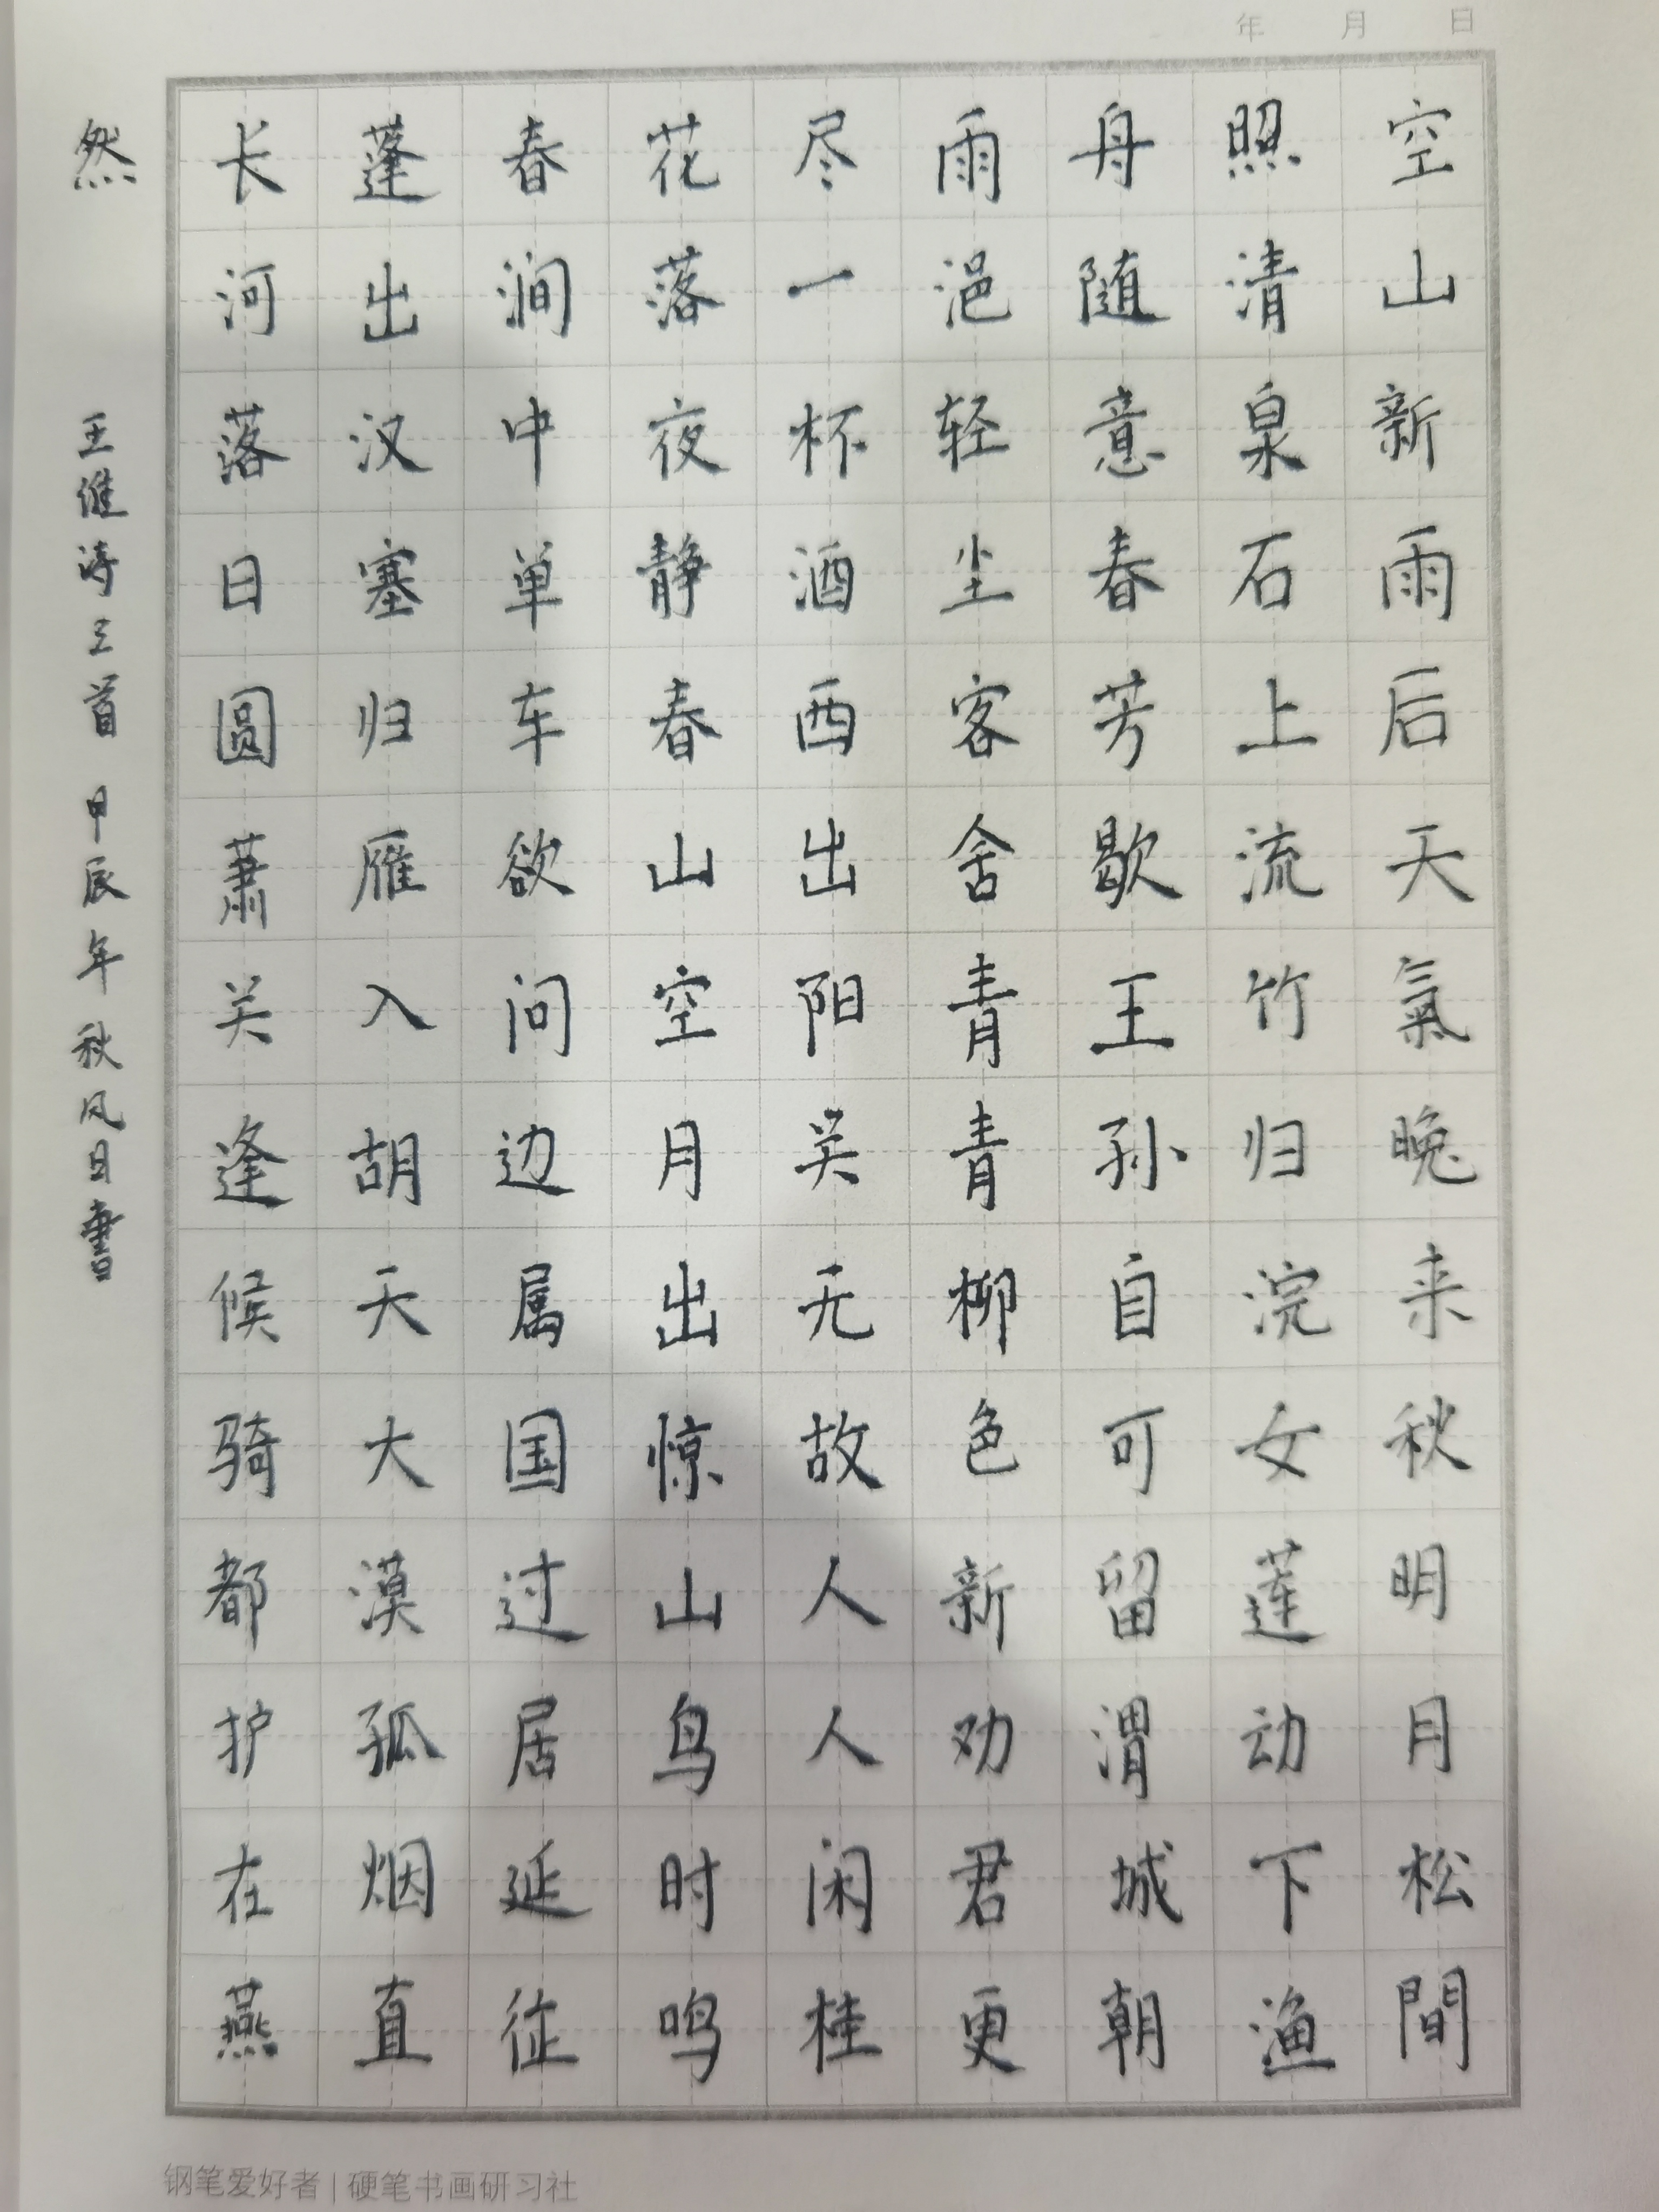 年 月 日
空山新雨后天氣晚来秋明月松間
照清泉石上流竹归浣女莲动下渔
舟随意春芳歇王孙自可留渭城朝
雨浥轻尘客舍青青柳色新劝君更
尽一杯酒西出阳关无故人人闲桂
花落夜静春山空月出惊山鸟时鸣
春涧中单车欲问边属国过居延征
蓬出汉塞归雁入胡天大漠孤烟直
长河落日圆萧关逢候骑都护在燕
然 王维诗三首 甲辰年秋风日書
钢笔爱好者 | 硬笔书画研习社